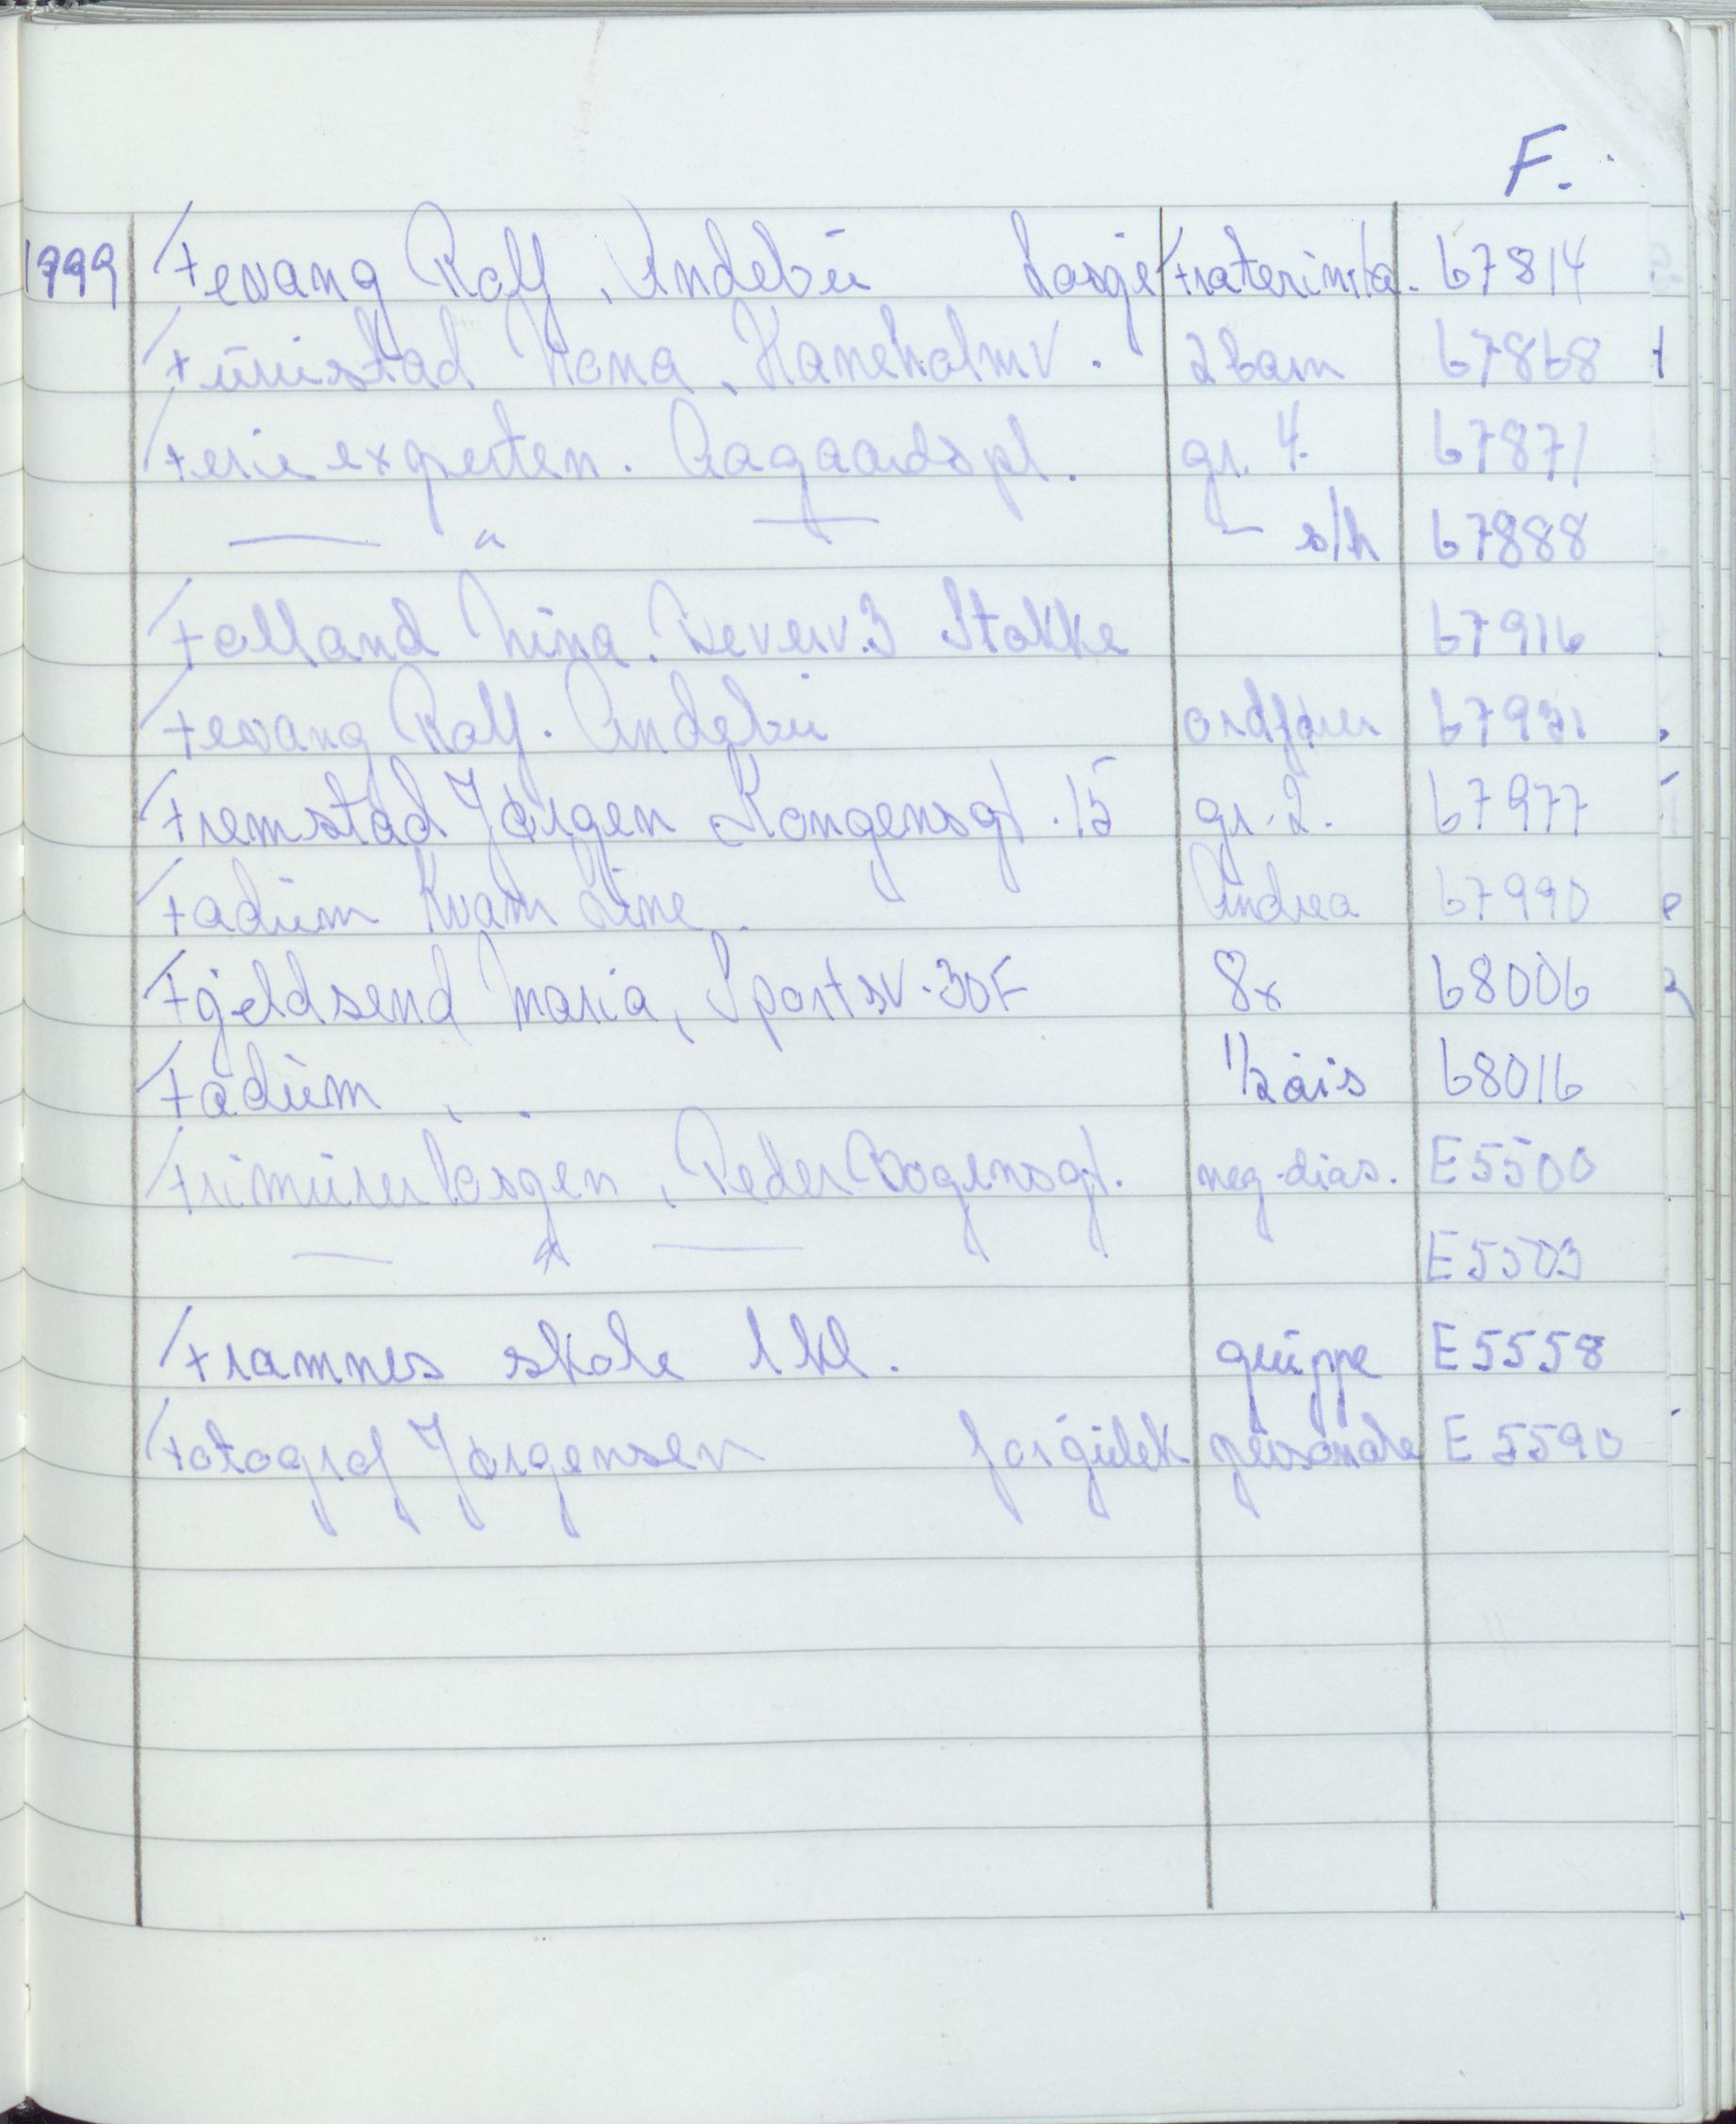 F.
1999 Fevang Rolf, Andebu Losje Fraterinita. 67814
Furustad Mona, Haneholmv. 2 barn 67868
Ferie experten. Aagaards pl. gr. 4. 67871
— " — - s/h 67888
Folland Nina. Veverv. 3 Stokke 67916
Fevang Rolf. Andebu ordfører
Fremstad Jørgen Kongensgt. 15 gr. 2. 67977
Fadum Kvam Line. Andrea 67990
Fjeldsend Maria, Sportsv. 30F 8x 68006
Fadum 1/2 års 68016
Frimurerlosjen, Peder Bogensgt. neg-dias. E5500
— " — E5503
Framnes skole 1 kl. gruppe E5558
Fotograf Jørgensen E5590